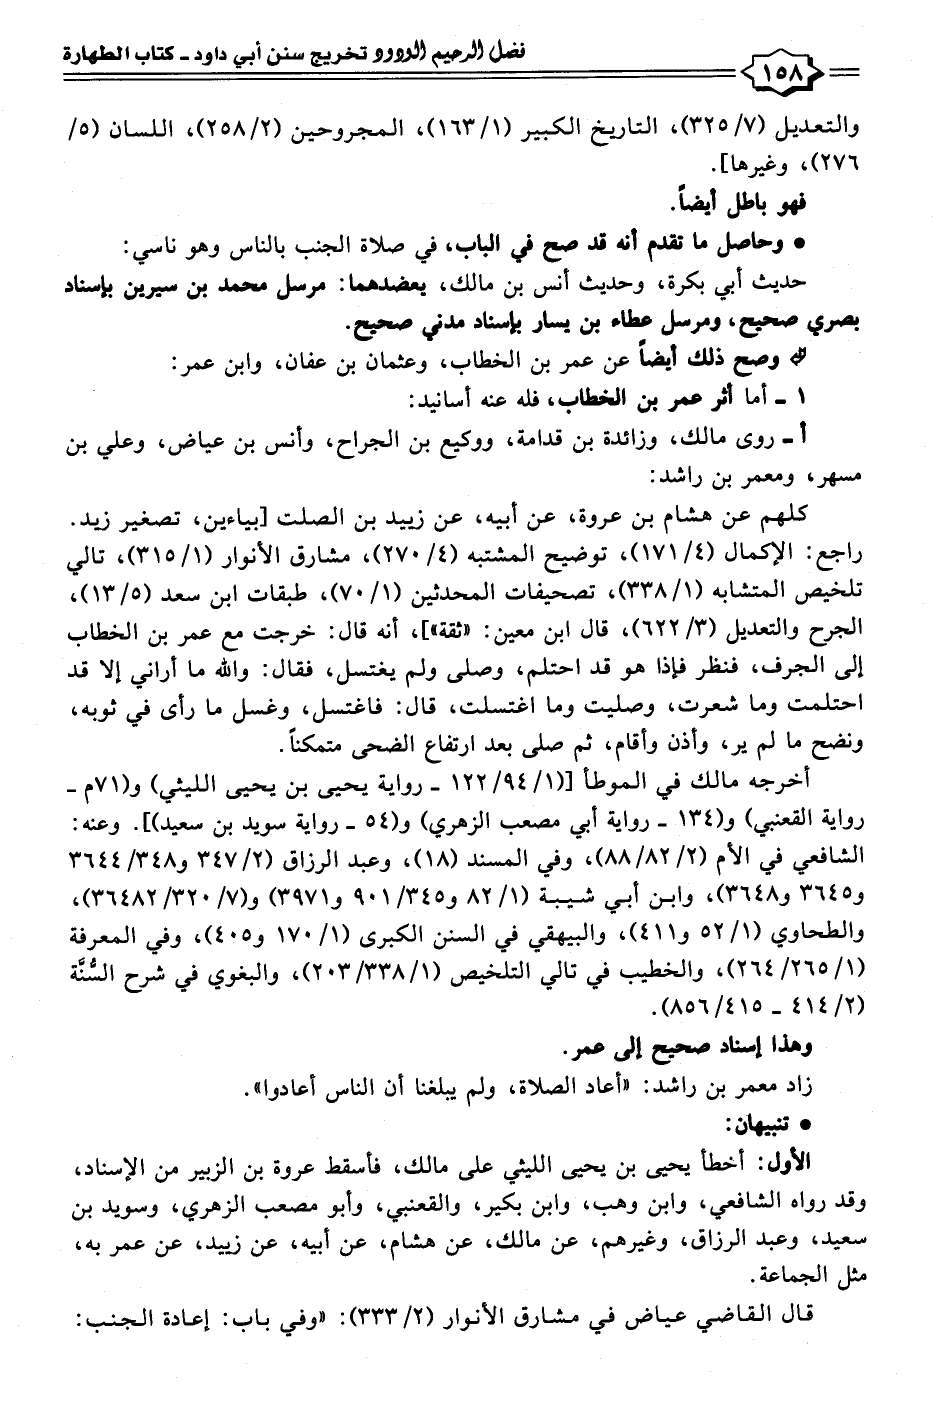 فضل الرحيم الودود تخريج سنن أبي داود - كتاب الطهارة
١٥٨
والتعديل (٣٢٥/٧)، التاريخ الكبير (١٦٣/١)، المجروحين (٢٥٨/٢)، اللسان (٥/
٢٧٦)، وغيرها].
فهو باطل أيضاً.
• وحاصل ما تقدم أنه قد صح في الباب، في صلاة الجنب بالناس وهو ناسي:
حديث أبي بكرة، وحديث أنس بن مالك، يعضدهما: مرسل محمد بن سيرين بإسناد
بصري صحيح، ومرسل عطاء بن يسار بإسناد مدني صحيح.
وصح ذلك أيضاً عن عمر بن الخطاب، وعثمان بن عفان، وابن عمر:
١ - أما أثر عمر بن الخطاب، فله عنه أسانيد:
أ - روى مالك، وزائدة بن قدامة، ووكيع بن الجراح، وأنس بن عياض، وعلي بن
مسهر، ومعمر بن راشد:
كلهم عن هشام بن عروة، عن أبيه، عن زييد بن الصلت [بياءين، تصغير زيد.
راجع: الإكمال (١٧١/٤)، توضيح المشتبه (٢٧٠/٤)، مشارق الأنوار (٣١٥/١)، تالي
تلخيص المتشابه (٣٣٨/١)، تصحيفات المحدثين (٧٠/١)، طبقات ابن سعد (١٣/٥)،
الجرح والتعديل (٦٢٢/٣)، قال ابن معين: «ثقة»]، أنه قال: خرجت مع عمر بن الخطاب
إلى الجرف، فنظر فإذا هو قد احتلم، وصلى ولم يغتسل، فقال: والله ما أراني إلا قد
احتلمت وما شعرت، وصليت وما اغتسلت، قال: فاغتسل، وغسل ما رأى في ثوبه،
ونضح ما لم ير، وأذن وأقام، ثم صلى بعد ارتفاع الضحى متمكناً.
أخرجه مالك في الموطأ [(١٢٢/٩٤/١ - رواية يحيى بن يحيى الليثي) و(٧١م -
رواية القعنبي) و(١٣٤ - رواية أبي مصعب الزهري) و(٥٤ - رواية سويد بن سعيد)]. وعنه:
الشافعي في الأم (٨٨/٨٢/٢)، وفي المسند (١٨)، وعبد الرزاق (٣٤٧/٢ و٣٦٤٤/٣٤٨
و٣٦٤٥ و٣٦٤٨)، وابن أبي شيبة (٨٢/١ و٩٠١/٣٤٥ و٣٩٧١) و(٣٦٤٨٢/٣٢٠/٧)،
والطحاوي (٥٢/١ و٤١١)، والبيهقي في السنن الكبرى (١٧٠/١ و٤٠٥)، وفي المعرفة
(٢٦٤/٢٦٥/١)، والخطيب في تالي التلخيص (٢٠٣/٣٣٨/١)، والبغوي في شرح السُّنَّة
(٤١٤/٢ - ٨٥٦/٤١٥).
وهذا إسناد صحيح إلى عمر.
زاد معمر بن راشد: «أعاد الصلاة، ولم يبلغنا أن الناس أعادوا».
• تنبيهان:
الأول: أخطأ يحيى بن يحيى الليثي على مالك، فأسقط عروة بن الزبير من الإسناد،
وقد رواه الشافعي، وابن وهب، وابن بكير، والقعنبي، وأبو مصعب الزهري، وسويد بن
سعيد، وعبد الرزاق، وغيرهم، عن مالك، عن هشام، عن أبيه، عن زييد، عن عمر به،
مثل الجماعة.
قال القاضي عياض في مشارق الأنوار (٣٣٣/٢): «وفي باب: إعادة الجنب: